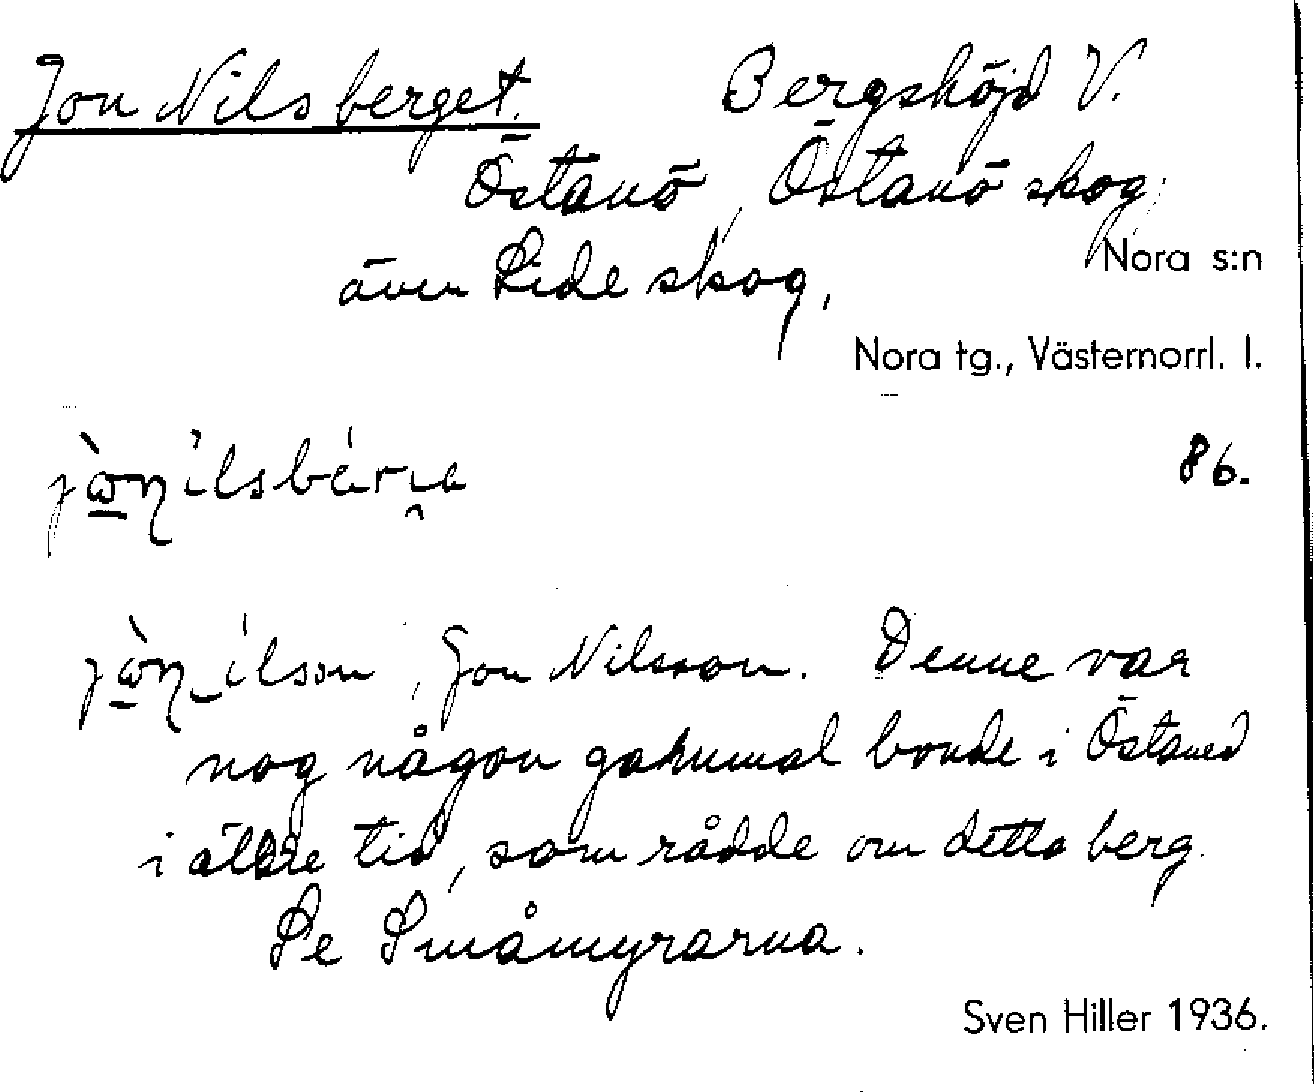 Jon Nilsberget. Bergshöjd V.
Östanö, Östanö skog,
även Lide skog,
Nora s:n
Nora tg., Västernorrl. l.
86.
Jon Nilsson. Denne var
nog någon gammal bonde i Östanö
i äldre tid, som rådde om detta berg.
Se Småmyrarna.
Sven Hiller 1936.